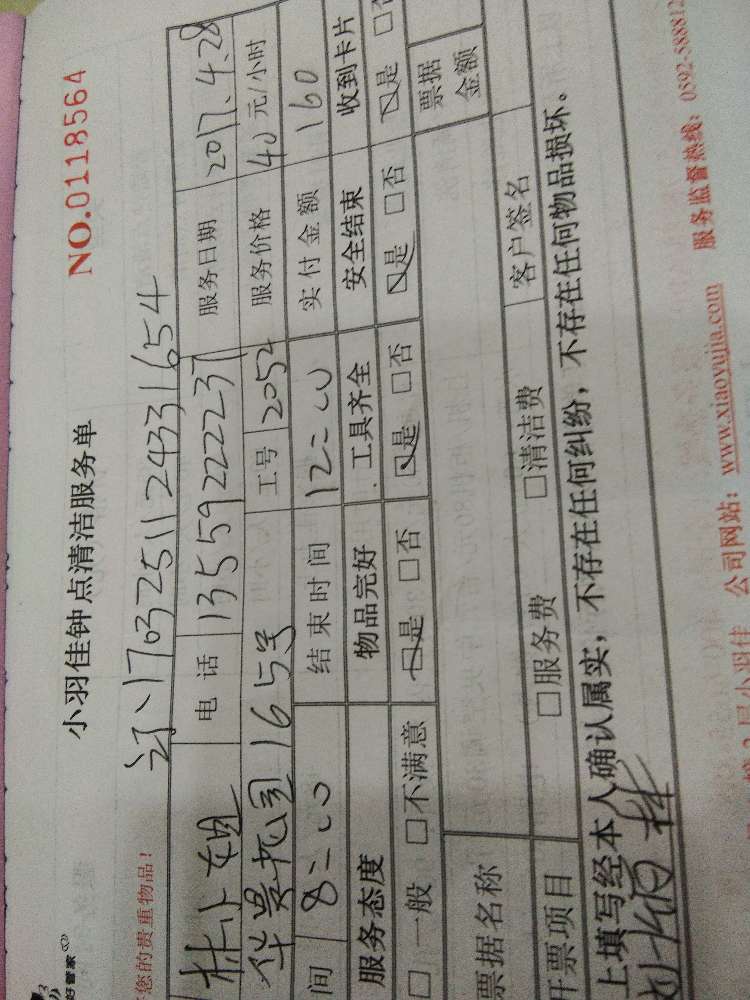 小羽佳钟点清洁服务单
NO.0118564
好管家
您的贵重物品！
1703251124331654
林小姐 电话 13559222237 服务日期 2017.4.28
华景花园165号 工号 2052 服务价格 40元/小时
间 8:00 结束时间 12:00 实付金额 160
服务态度 物品完好 工具齐全 安全结束 收到卡片
□一般 □不满意 □是 □否 □是 □否 □是 □否 □是 □否
票据名称 票据金额
开票项目 □服务费 □清洁费 客户签名
上填写经本人确认属实，不存在任何纠纷，不存在任何物品损坏。
公司网站：www.xiaoyujia.com 服务监督热线：0592-5888812